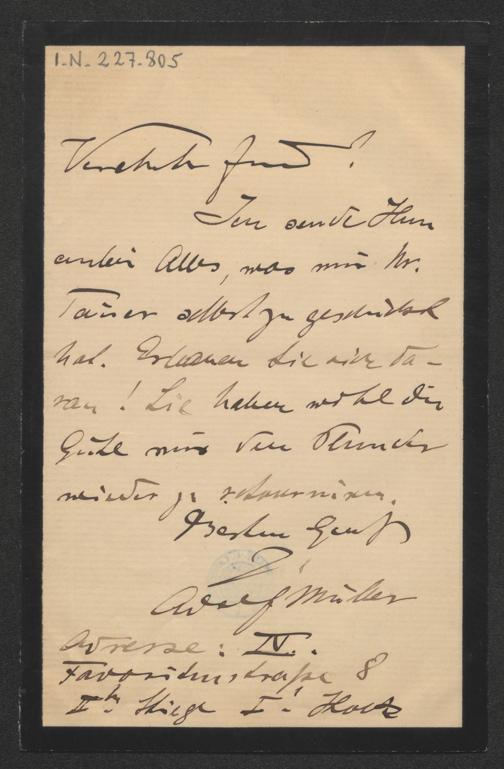 I.N. 227.805
Verehrter Freund!
Ich sende Ihnen
anbei Alles, was mir Hr.
selbst zu geschickt
hat. Erbauen Sie sich da-
ran! Sie haben wohl die
Güte mir den Plunder
wieder zu retournieren.
Besten Gruß
Adolf Müller
Adresse: IV.
Favoritenstraße 8
IIte Stiege I. Stock